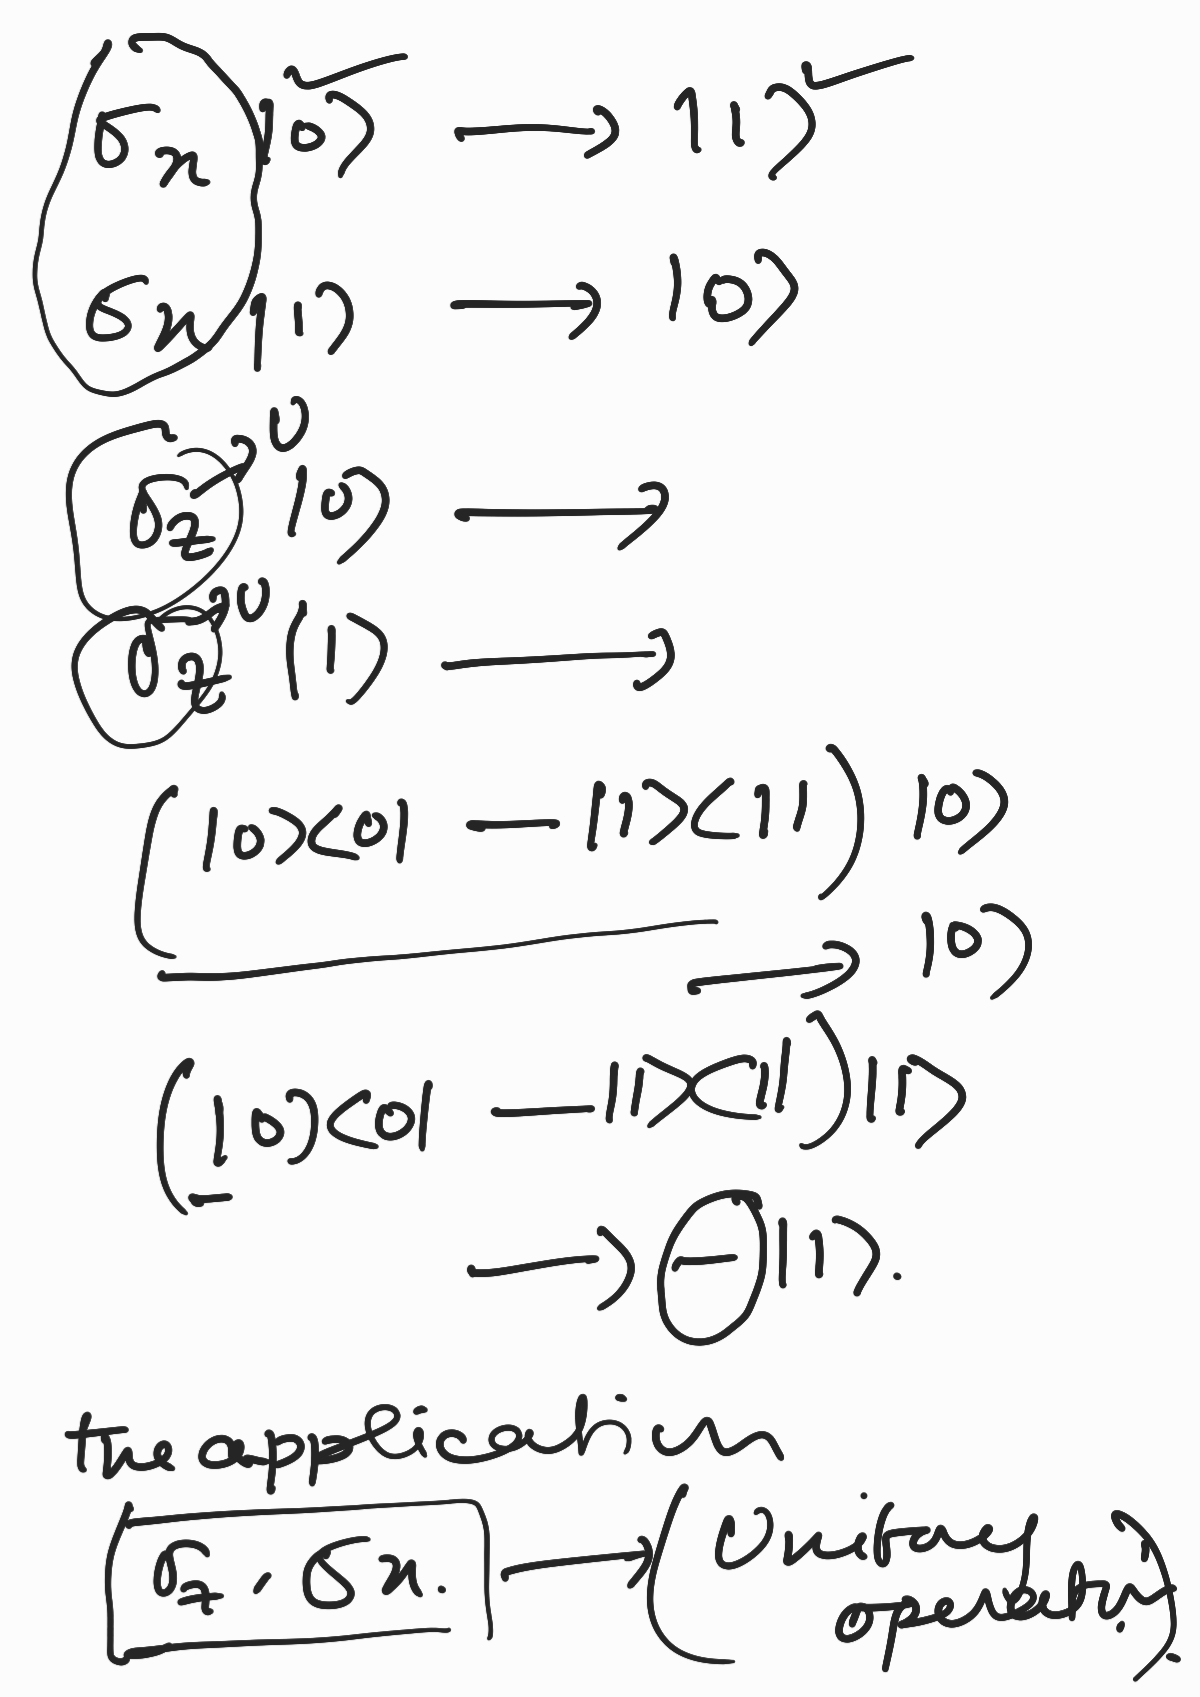 σx |0⟩ → |1⟩
σx |1⟩ → |0⟩
U
σz |0⟩ →
U
σz |1⟩ →
(|0><0| — |1><1|) |0⟩
→ |0⟩
(|0⟩<0| — |1><1|) |1⟩
→ — |1⟩.
the application
σz , σx. → (Unitary
operator).